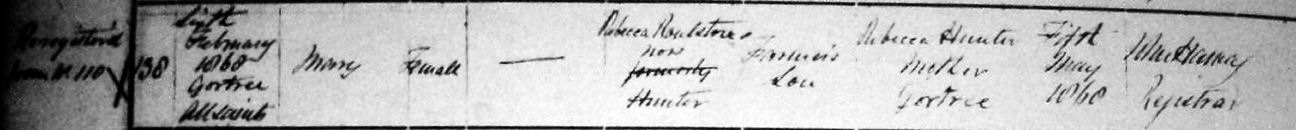 Reregistered
from No 110
138
Sixth
February
1868
Gortree
All Saints
Mary
Female
—
Rebecca Roulstone
now
formerly
Hunter
Farmer's
Rebecca Hunter
Mother
Gortree
Fifth
May
1868
Registrar